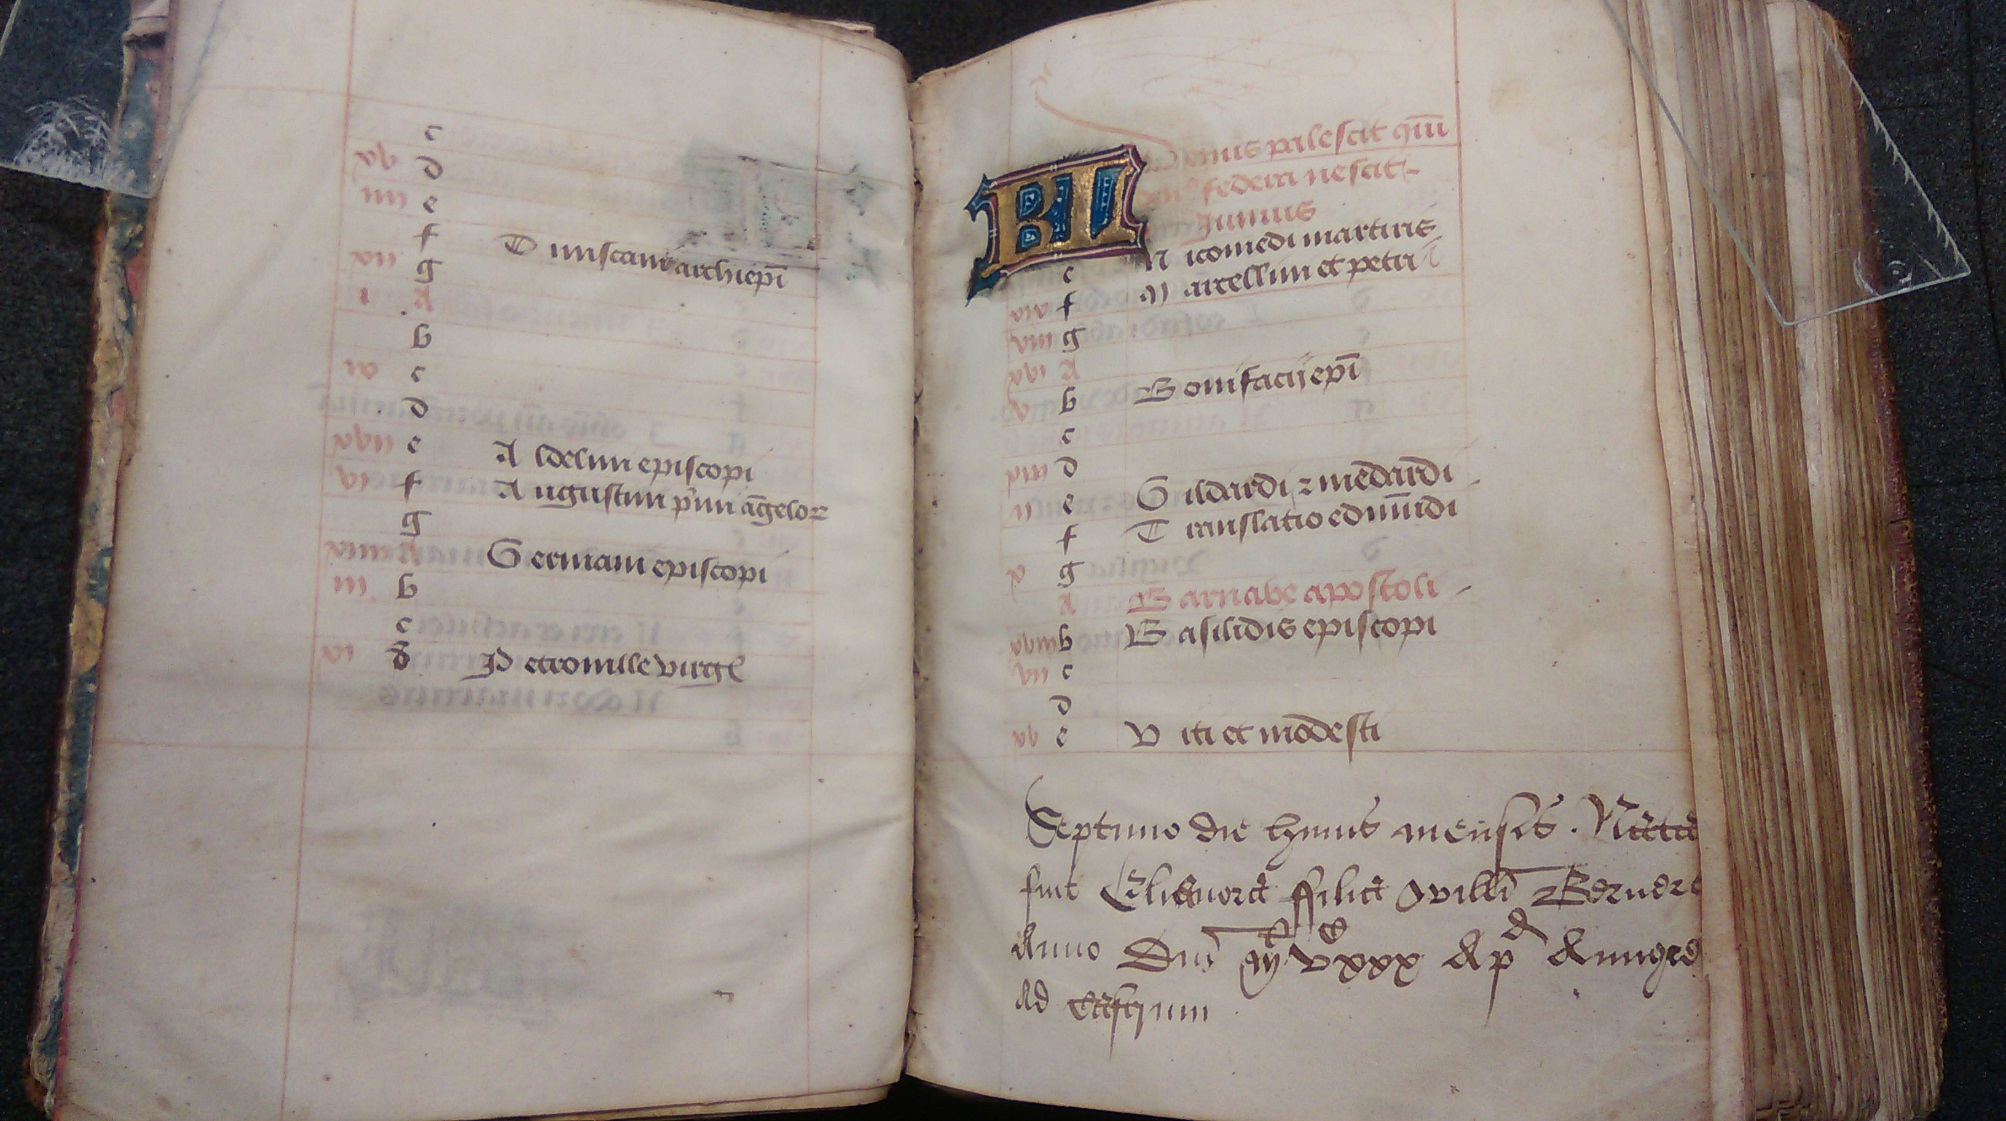 c
xv d
iiii e
f Dunstani archiepī
xii g
i A
b
ix c
d
xvii e Aldelmi episcopi
vi f Augustini p̄mi āgeloꝝ
g
xiiii A Germani episcopi
iii b
c
xi d Petronille virgꝭ
palescit qm̄
federa nescit
Junius
KL Nicomedi martiris
e Marcellini et petri
xix f
viii g
xvi A
v b Bonifacij epī
c
xiii d
ii e Gildardi ⁊ medardi
f Translatio edmūdi
x g
A Barnabe apostoli
xviii b Basilidis episcopi
vii c
d
xv e Viti et modesti
Septimo die huius mensis. Nata
fuit Elienora ffilia Willī
Anno Dnī Mᵒ Vᶜ xxx Apᵈ
Ad